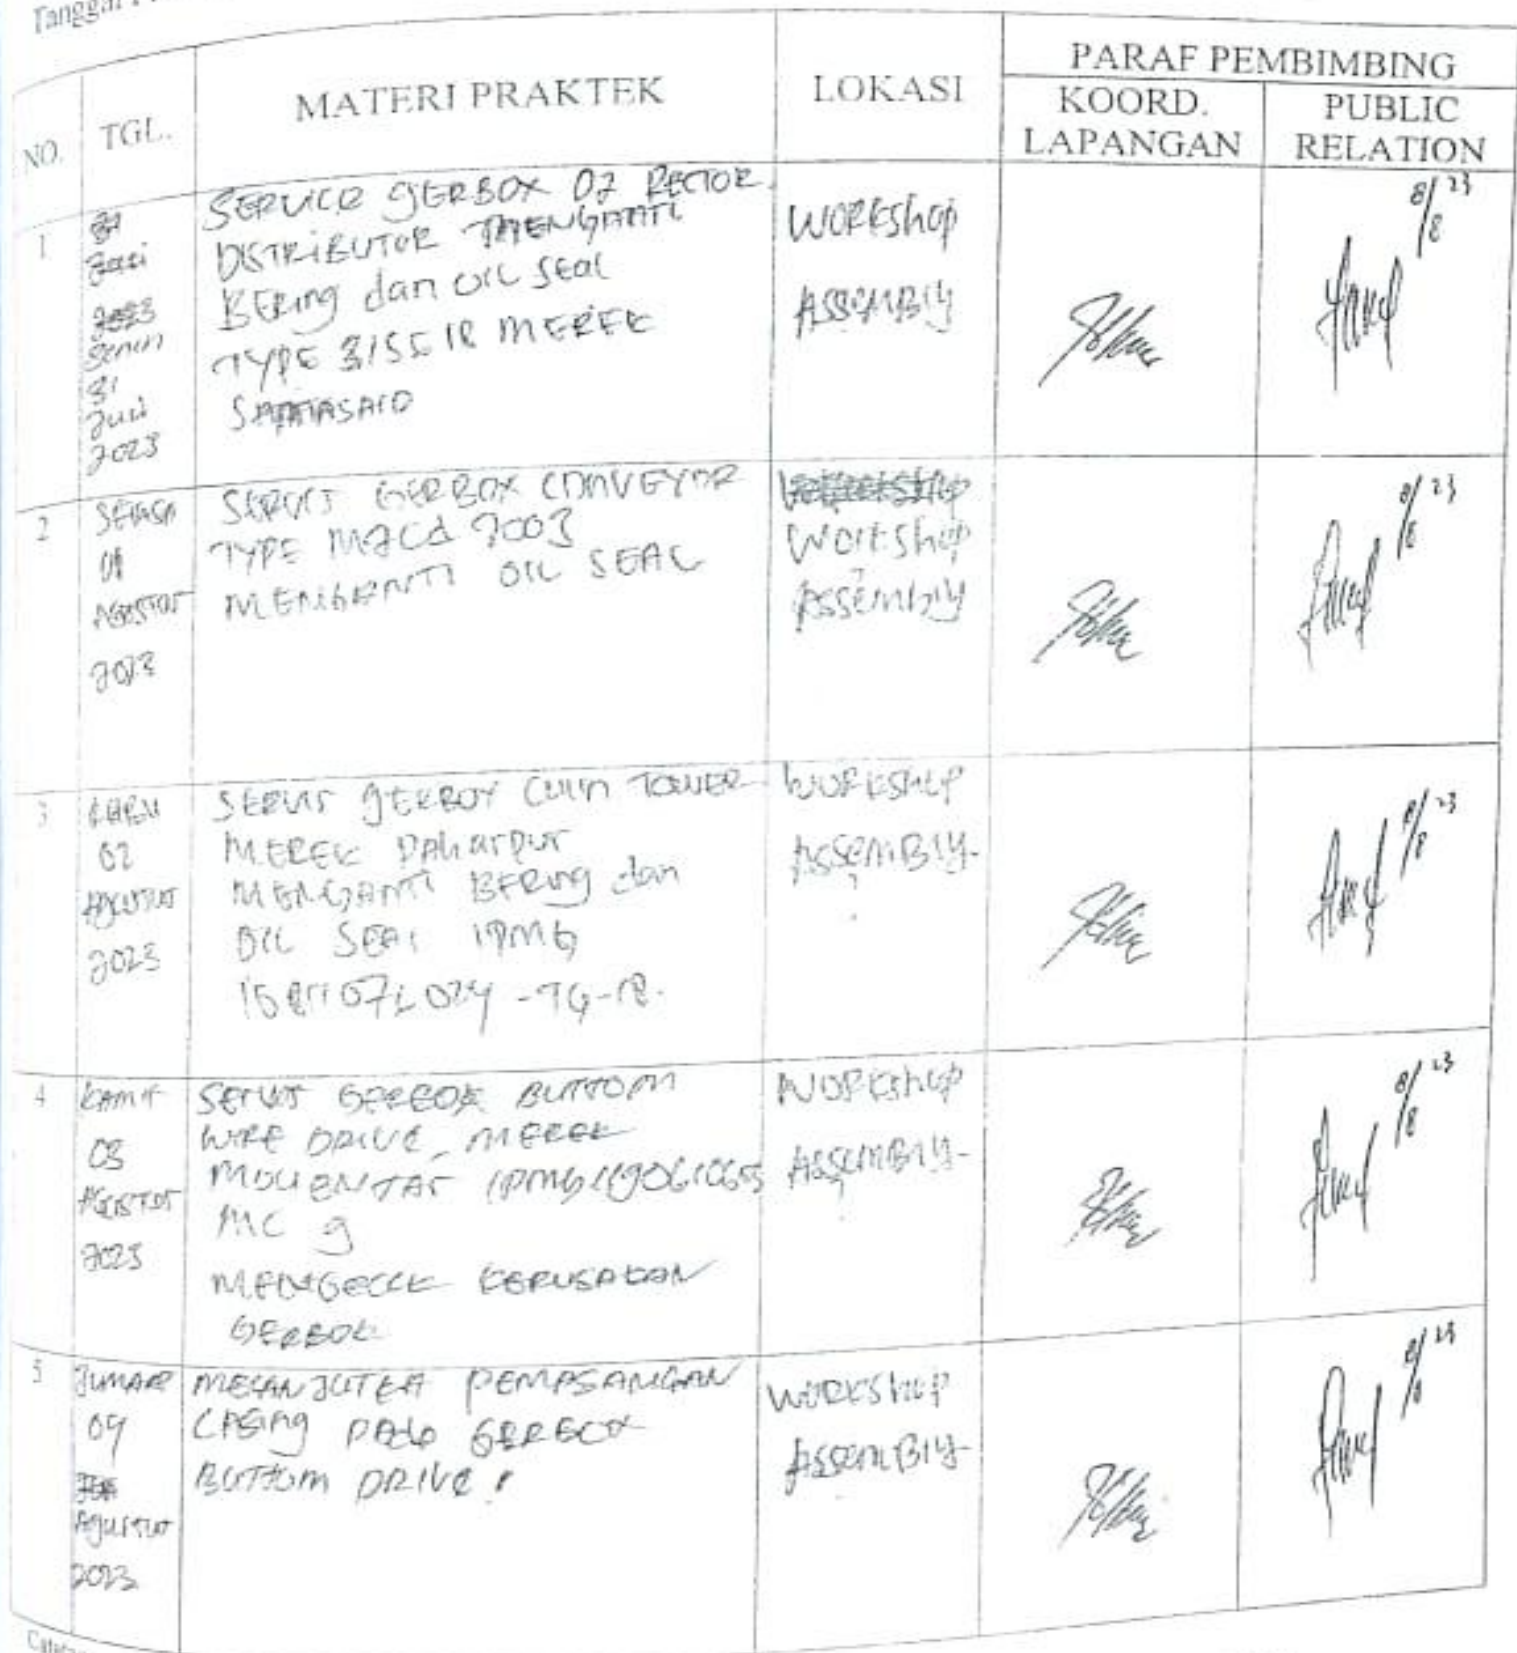 Tanggal
NO.
TGL.
MATERI PRAKTEK
LOKASI
PARAF PEMBIMBING
KOORD.
LAPANGAN
PUBLIC
RELATION
1
2023
Senin
31
Juli
2023
SERVICE GERBOX
DISTRIBUTOR MENGANTI
BERING dan OIL SEAL
TYPE MEREK
WORKSHOP
ASSEMBLY
8/8 23
2
SELASA
01
AGUSTUS
2023
SERVIS GERBOX CONVEYOR
TYPE
MENGENTI OIL SEAL
WORKSHOP
ASSEMBLY
8/8 23
3
RABU
02
AGUSTUS
2023
SERVIS GERBOX TOWER
MEREK
MENGANTI BERING dan
OIL SEAL
WORKSHOP
ASSEMBLY
8/8 23
4
KAMIS
03
AGUSTUS
2023
SERVIS GERBOX BUTTOM
WIRE DRIVE, MEREK
MC 9
MENGECEK KERUSAKAN
GERBOX
WORKSHOP
ASSEMBLY
8/8 23
5
JUMAAT
04
AGUSTUS
2023
PEMASANGAN
CASING PADA GERBOX
BUTTOM DRIVE
WORKSHOP
ASSEMBLY
8/8 23